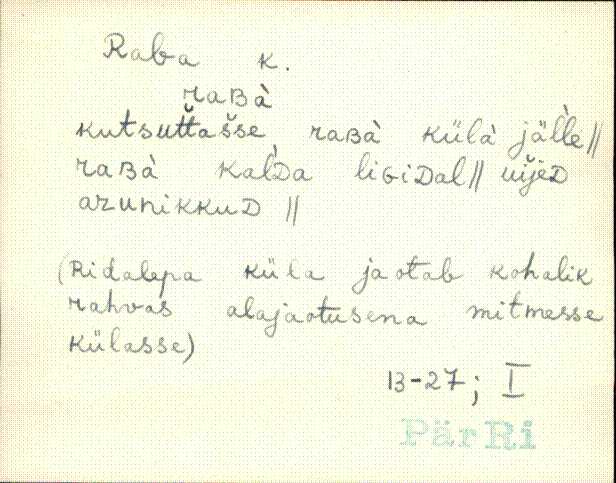 Raba k.
raʙà
kutsutťašse raʙà külà jäl̀le //
raʙà kal̀ᴅa liɢiᴅal // uijeᴅ
azunikkuᴅ //
(Ridalepa küla jaotab kohalik
rahvas alajaotusena mitmesse
külasse)
13-27; I
PärRi